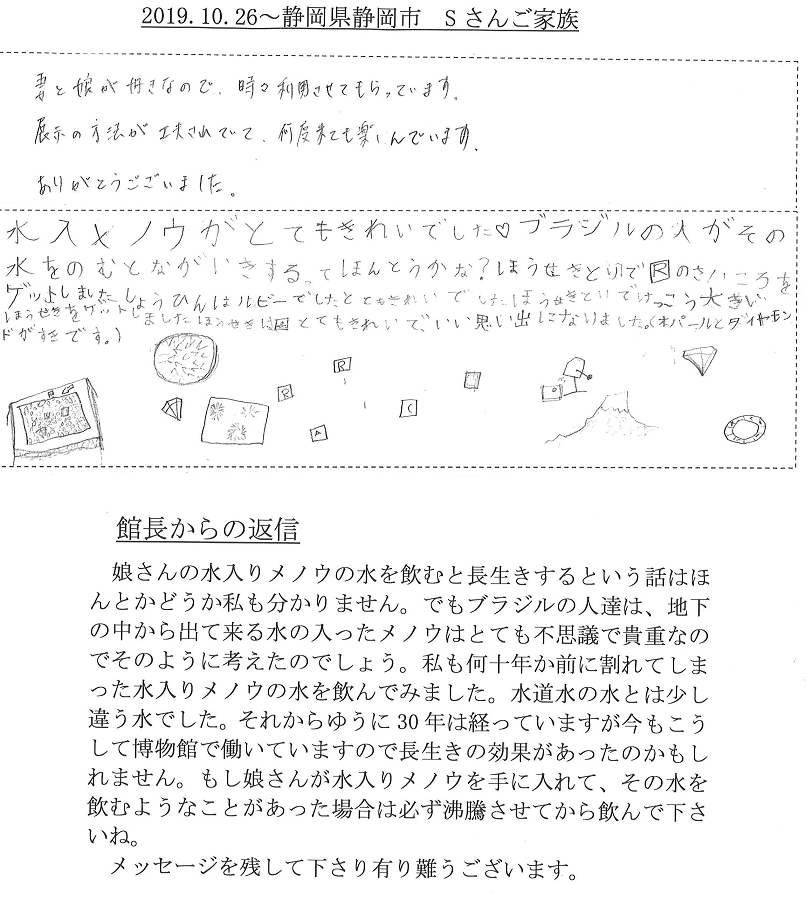 2019.10.26～静岡県静岡市　Sさんご家族
妻と娘が好きなので、時々利用させてもらっています。
展示の方法が工夫されていて、何度来ても楽しんでいます。
ありがとうございました。
水入メノウがとてもきれいでした♡ブラジルの人がその
水をのむとながいきするってほんとうかな？ほうせきとりでRのさいころを
ゲットしましたしょうひんはルビーでしたとてもきれいでしたほうせきとりでけっこう大きい
ほうせきをゲットしましたほうせきは とてもきれいで、いい思い出になりました。(オパールとダイヤモン
ドがすきです。)
R
R
A
C
館長からの返信
娘さんの水入りメノウの水を飲むと長生きするという話はほ
んとかどうか私も分かりません。でもブラジルの人達は、地下
の中から出て来る水の入ったメノウはとても不思議で貴重なの
でそのように考えたのでしょう。私も何十年か前に割れてしま
った水入りメノウの水を飲んでみました。水道水の水とは少し
違う水でした。それからゆうに30年は経っていますが今もこう
して博物館で働いていますので長生きの効果があったのかもし
れません。もし娘さんが水入りメノウを手に入れて、その水を
飲むようなことがあった場合は必ず沸騰させてから飲んで下さ
いね。
メッセージを残して下さり有り難うございます。